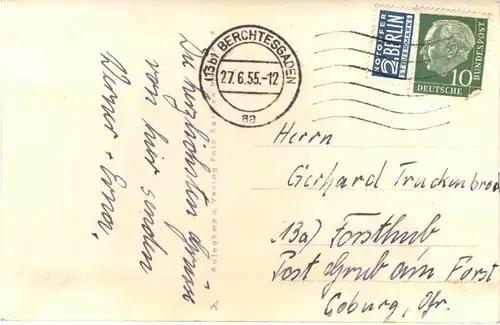 Die herzlichsten Grüsse
von hier senden
Werner + Erna.
Aufnahmen Verlag Foto
(13b) BERCHTESGADEN
27.6.55.-12
aa
NOTOPFER
2 BERLIN
STEUERMARKE
DEUTSCHE
BUNDESPOST
10
Herrn
Gerhard Truckenbrod
13a) Forsthub
Post Grub am Forst
Coburg, Ofr.